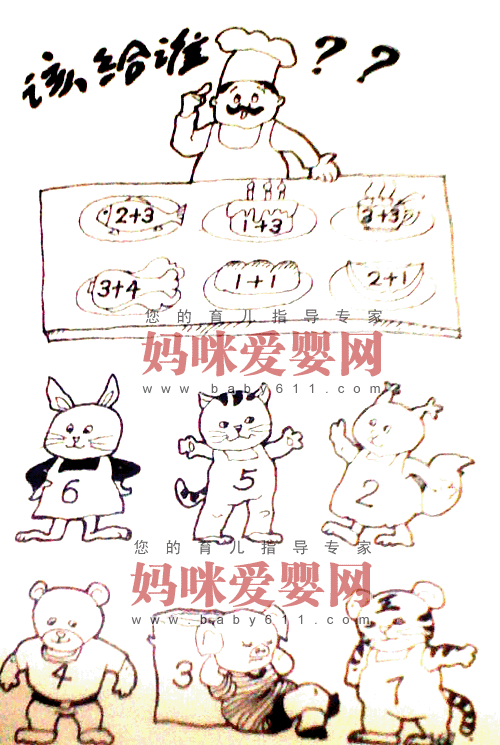 该给谁??
2+3 1+3 3+3
3+4 1+1 2+1
您的育儿指导专家
妈咪爱婴网
www.baby611.com
6 5 2
您的育儿指导专家
妈咪爱婴网
www.baby611.com
4 3 7